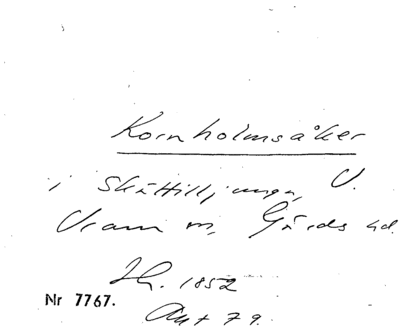 Kornholmsåker
i Skättilljunga, V.
Vram sn, Gärds hd.
Jb. 1852
Nr 7767.
Ant 79.